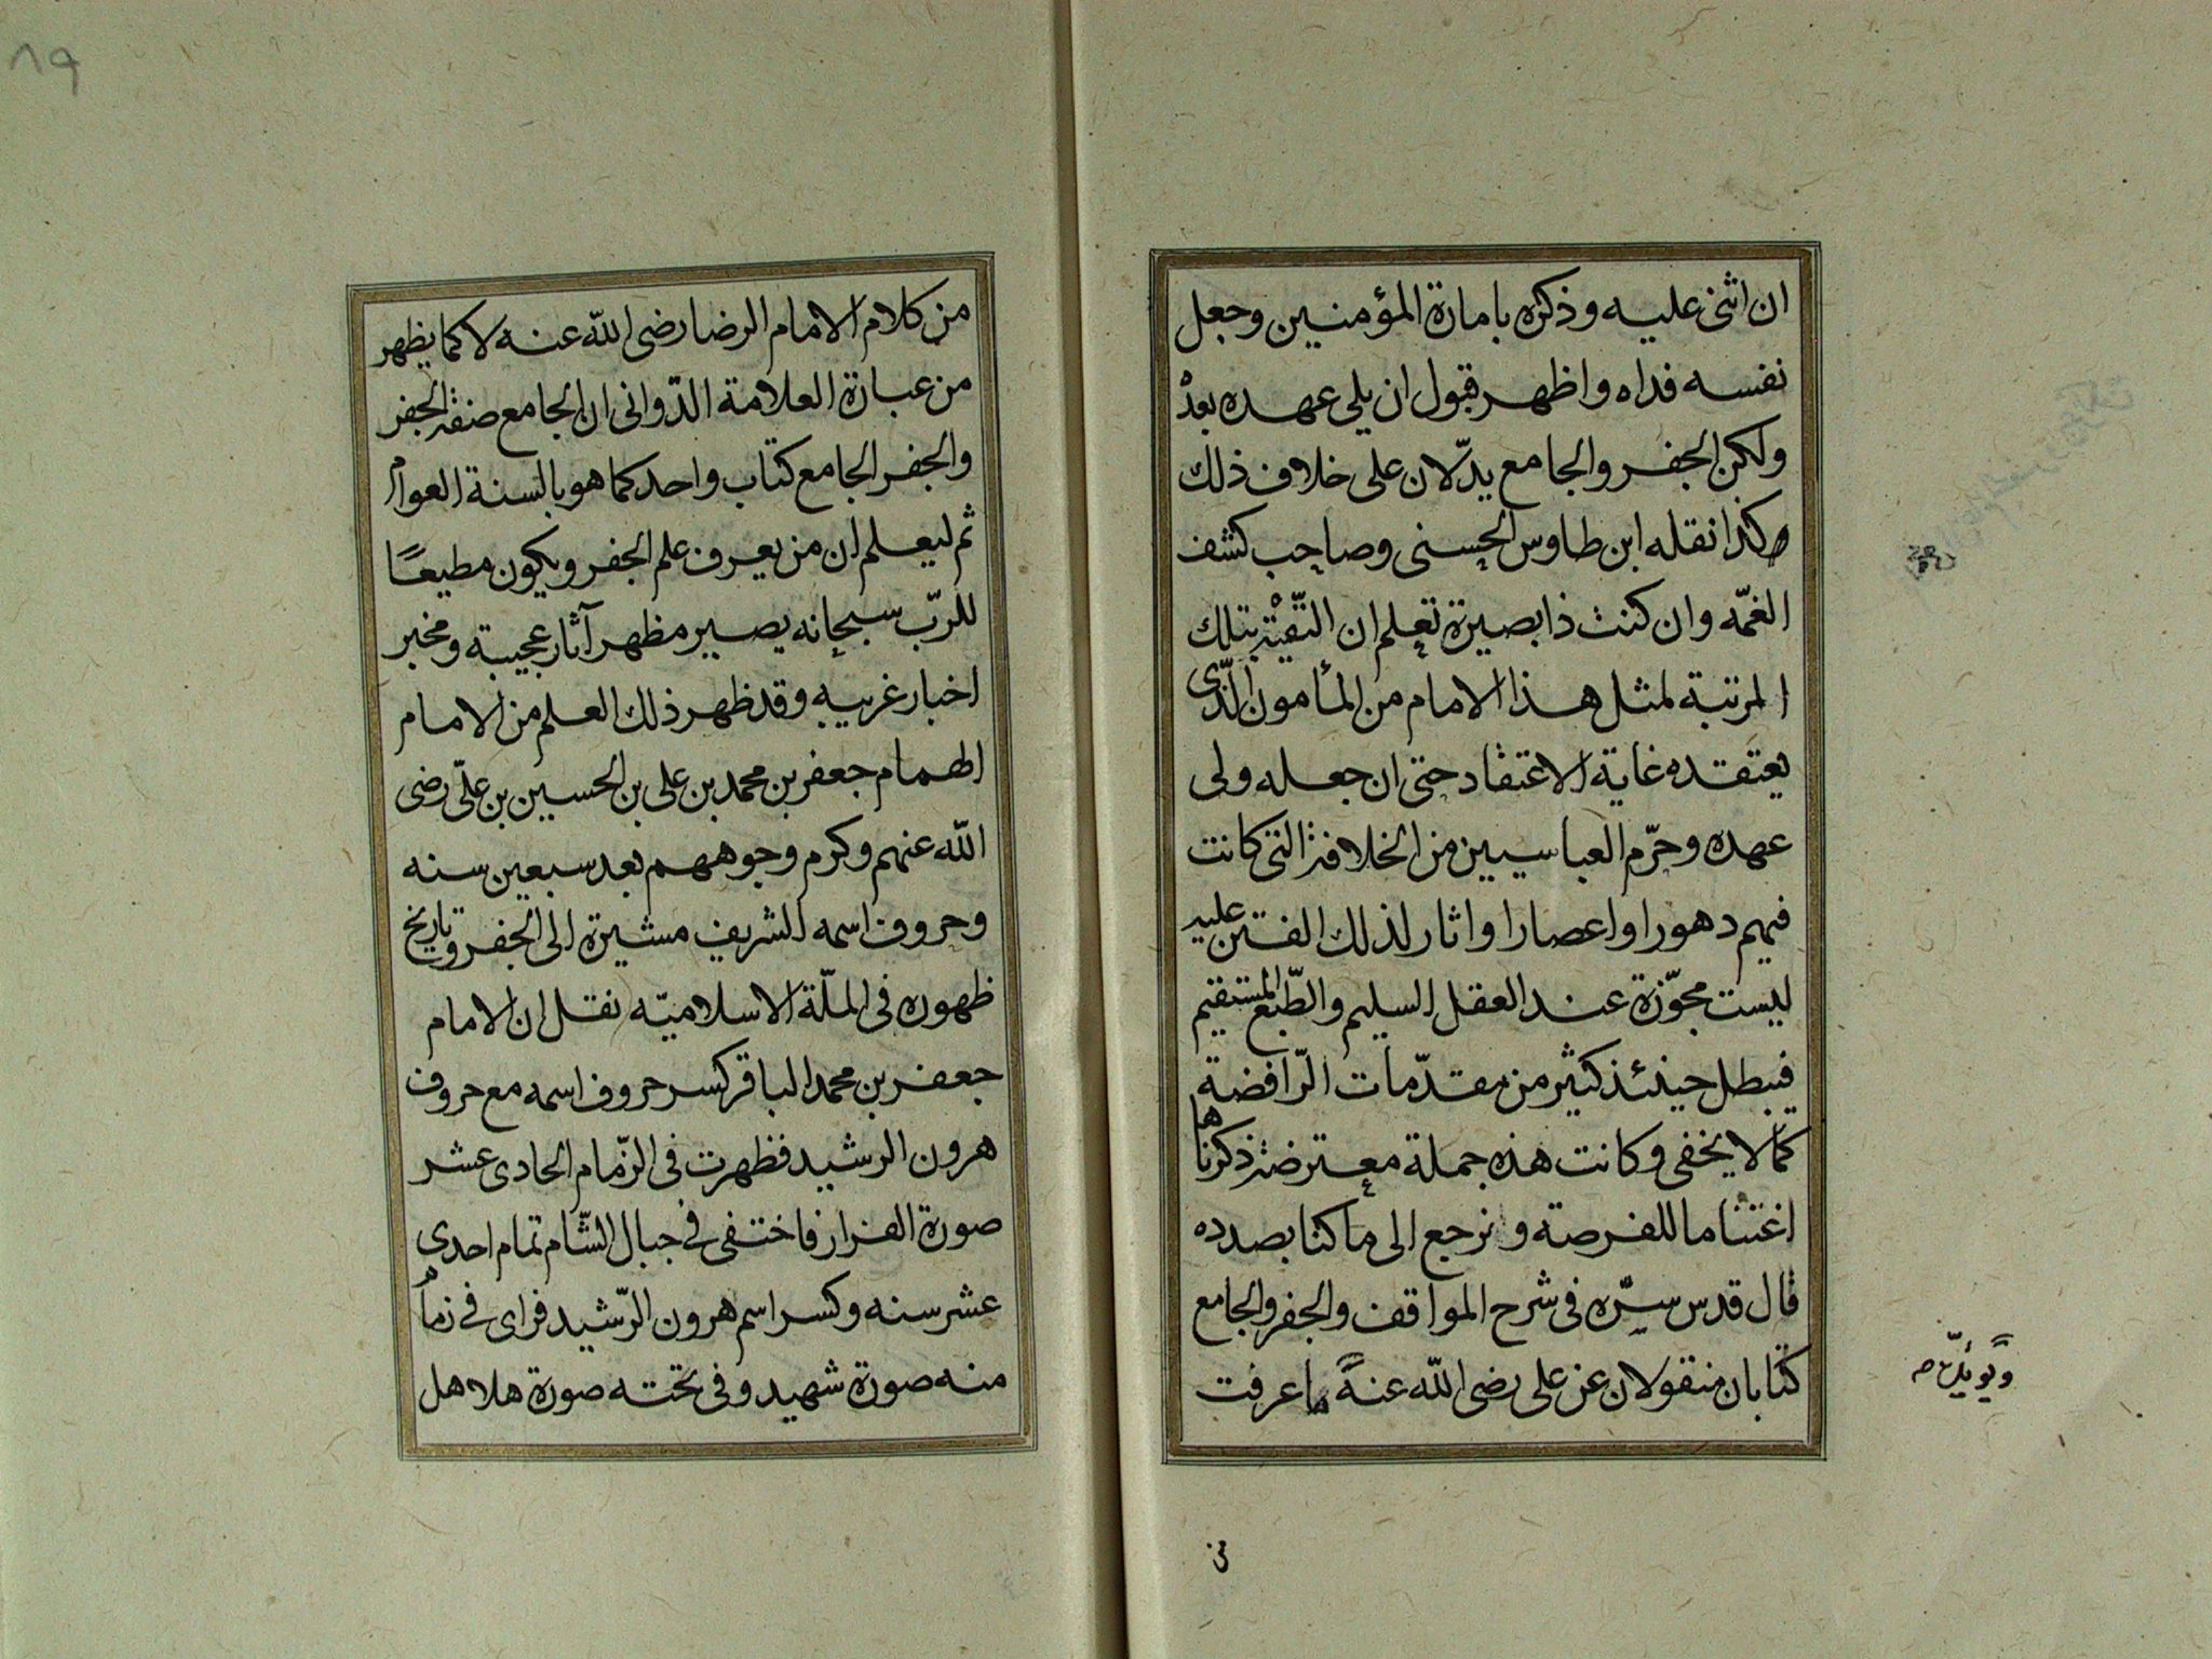 ان اثنى عليه وذكره بامارة المؤمنين وجعل
نفسه فداه واظهر قبول ان يلى عهده بعده
ولكن الجفر والجامع يدّلان على خلاف ذلك
هكذا نقله ابن طاوس الحسنى وصاحب كشف
الغمّه وان كنت ذا بصيرة تعلم ان التّقيّة بتلك
المرتبة لمثل هذا الامام من المأمون الّذى
يعتقده غاية الاعتقاد حتى ان جعله ولى
عهده وحرّم العباسيين من الخلافة التى كانت
فيهم دهورا واعصارا واثار لذلك الفتن عليه
ليست مجوّزة عند العقل السليم والطّبع المستقيم
فيبطل حينئذ كثير من مقدّمات الرّافضة
كما لا يخفى وكانت هذه جملة معترضة ذكرناها
اغتناما للفرصته ونرجع الى ما كنا بصدده
قال قدس سرّه فى شرح المواقف والجفر والجامع
كتابان منقولان عن على رضى الله عنه ما عرفت
ويؤيّده
من
٨٩
من كلام الامام الرضا رضى الله عنه لا كما يظهر
من عبارة العلامة الدّوانى ان الجامع صنفة الجفر
والجفر الجامع كتاب واحد كما هو بالسنة العوام
ثم ليعلم ان من يعرف علم الجفر ويكون مطيعًا
للرّب سبحانه يصير مظهر آثار عجيبة ومخبر
اخبار غريبه وقد ظهر ذلك العلم من الامام
الهمام جعفر بن محمد بن على بن الحسين بن علىّ رضى
الله عنهم وكرم وجوههم بعد سبعين سنه
وحروف اسمه الشريف مشيرة الى الجفر وتاريخ
ظهوره فى الملّة الاسلاميّه نقل ان الامام
جعفر بن محمد الباقر كسر حروف اسمه مع حروف
هرون الرشيد فظهرت فى الزّمام الحادى عشر
صورة الفرار فاختفى فى جبال الشّام تمام احدى
عشر سنه وكسر اسم هرون الرّشيد فراى فى زمام
منه صورة شهيد وفى تحته صورة هلاهل